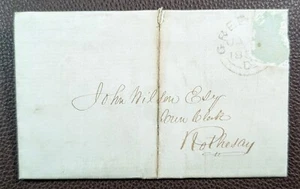 GREE
John Wilson Esqr
Town Clerk
Rothesay